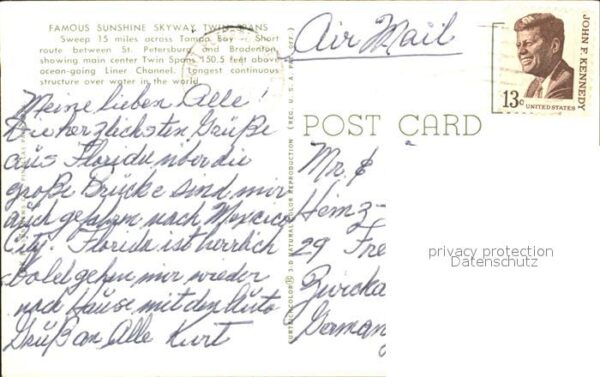 FAMOUS SUNSHINE SKYWAY TWIN SPANS
Sweep 15 miles across Tampa Bay — Short
route between St. Petersburg and Bradenton,
showing main center Twin Spans 150.5 feet above
ocean-going Liner Channel. Longest continuous
structure over water in the world.
Meine lieben Alle!
Die herzlichsten Grüße
aus Florida über die
große Brücke sind wir
auch gefahren nach Mexico
City. Florida ist herrlich
Bald gehen wir wieder
nach Hause mit den Auto
Gruß an Alle Kurt
Air Mail
POST CARD
Mr. &
Heinz-
29
Zwicka
German
JOHN F. KENNEDY
13c UNITED STATES
privacy protection
Datenschutz